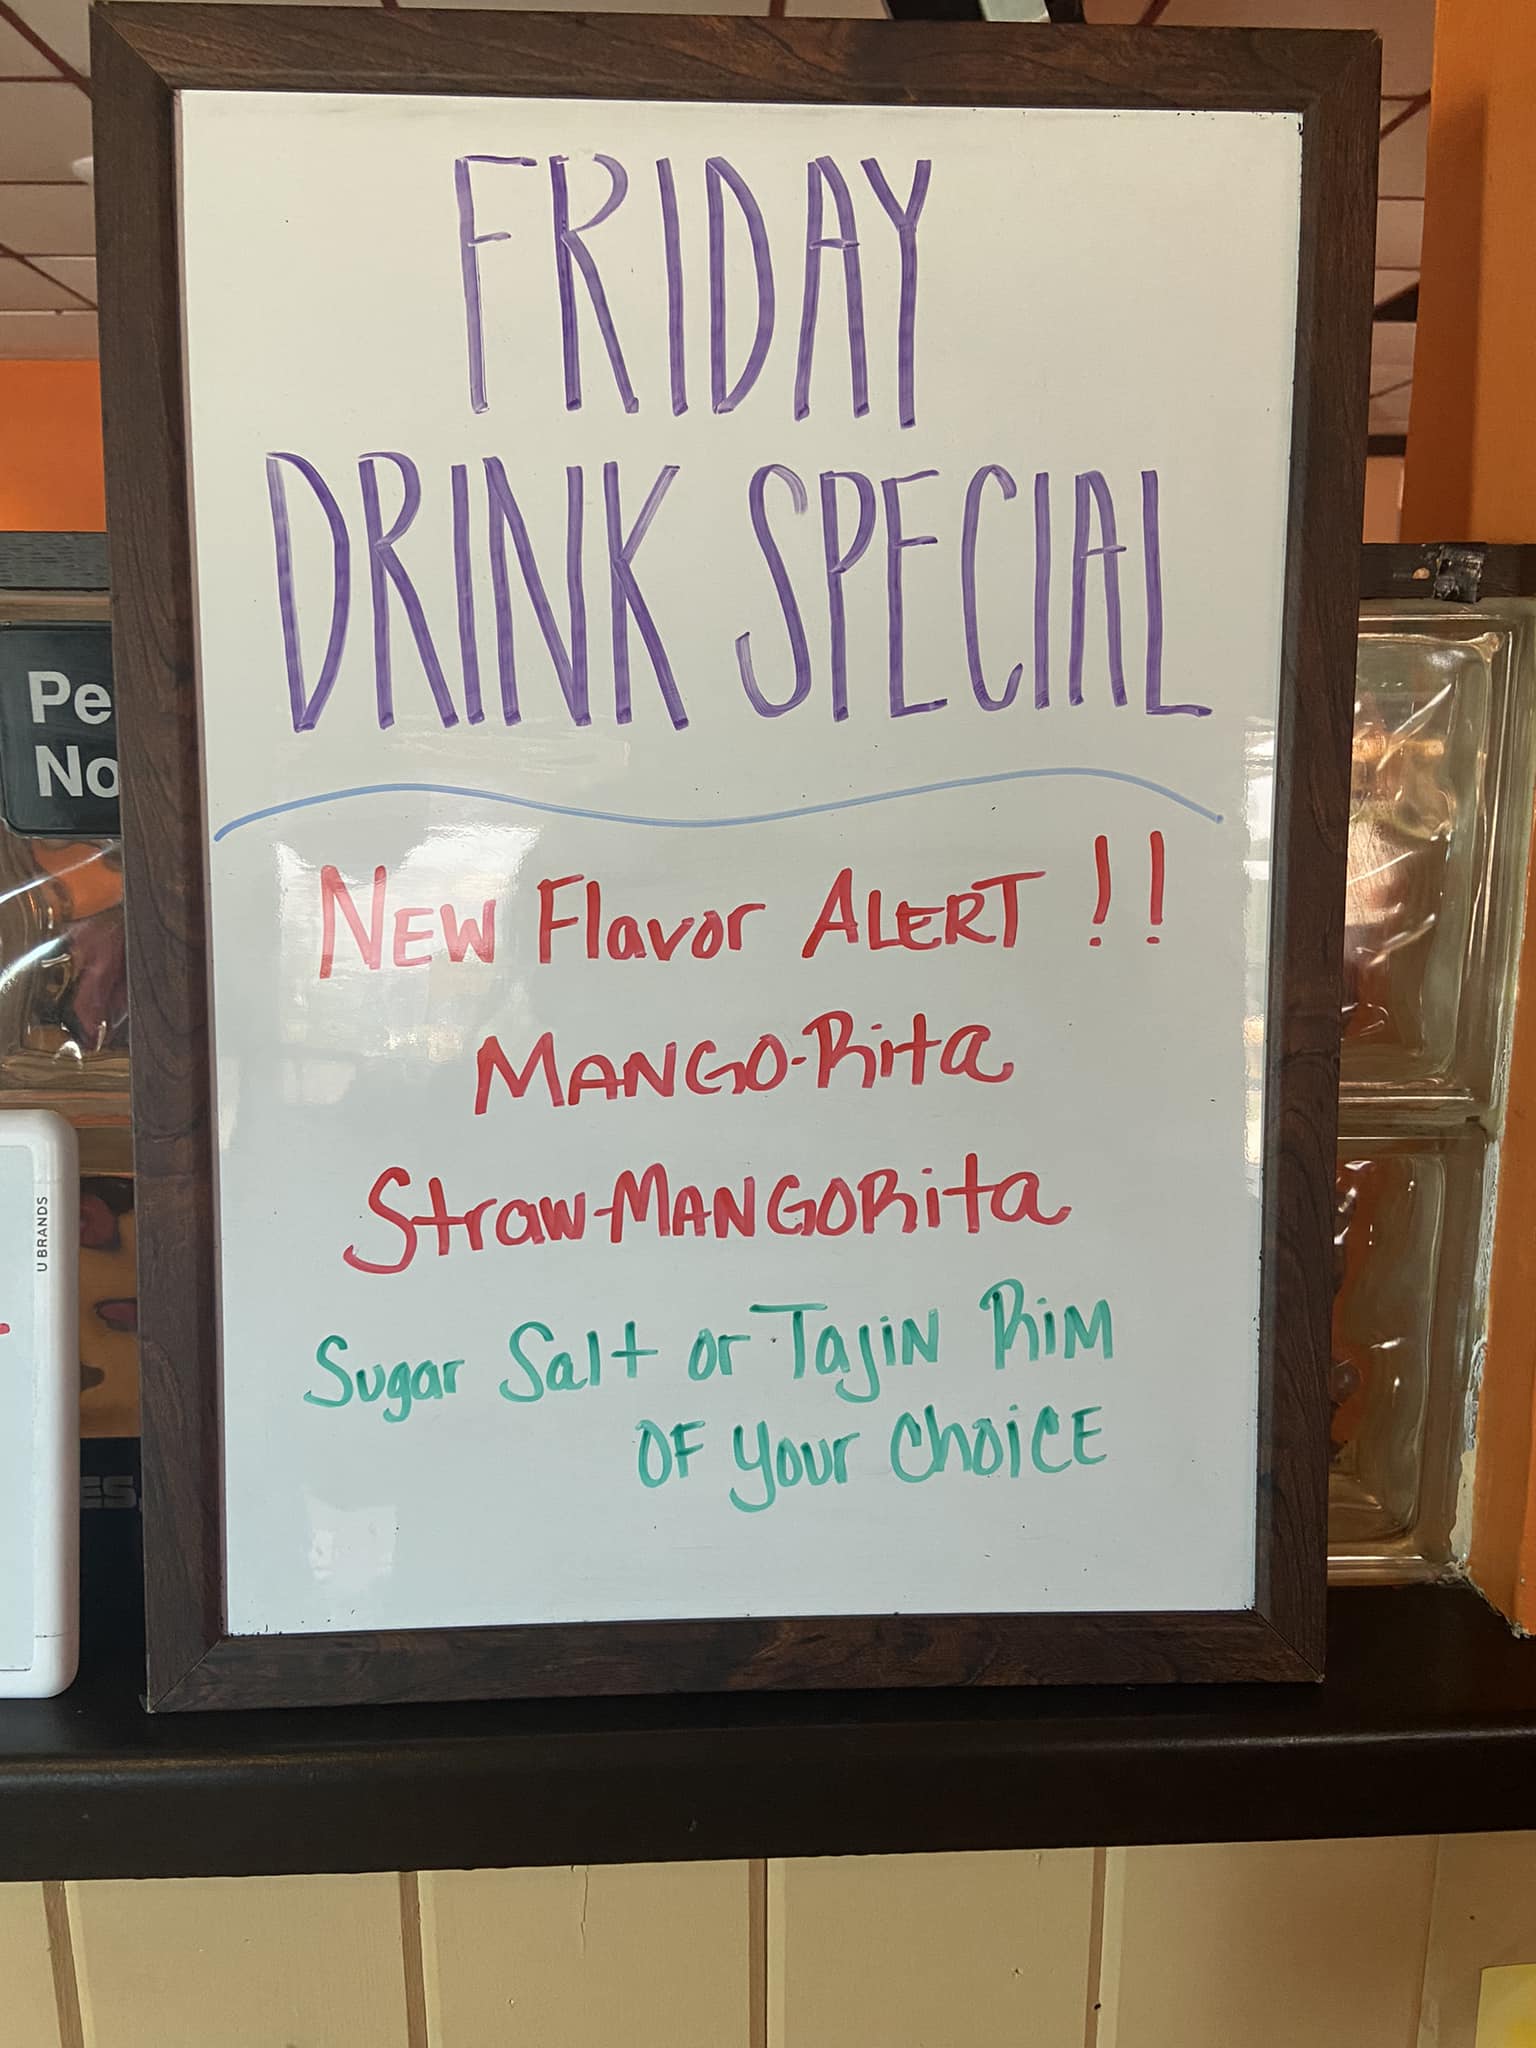 FRIDAY
DRINK SPECIAL
NEW Flavor ALERT !!
MANGO-Rita
Straw-MANGORita
Sugar Salt or Tajin Rim
OF your choice
Pe
No
U BRANDS
ES.